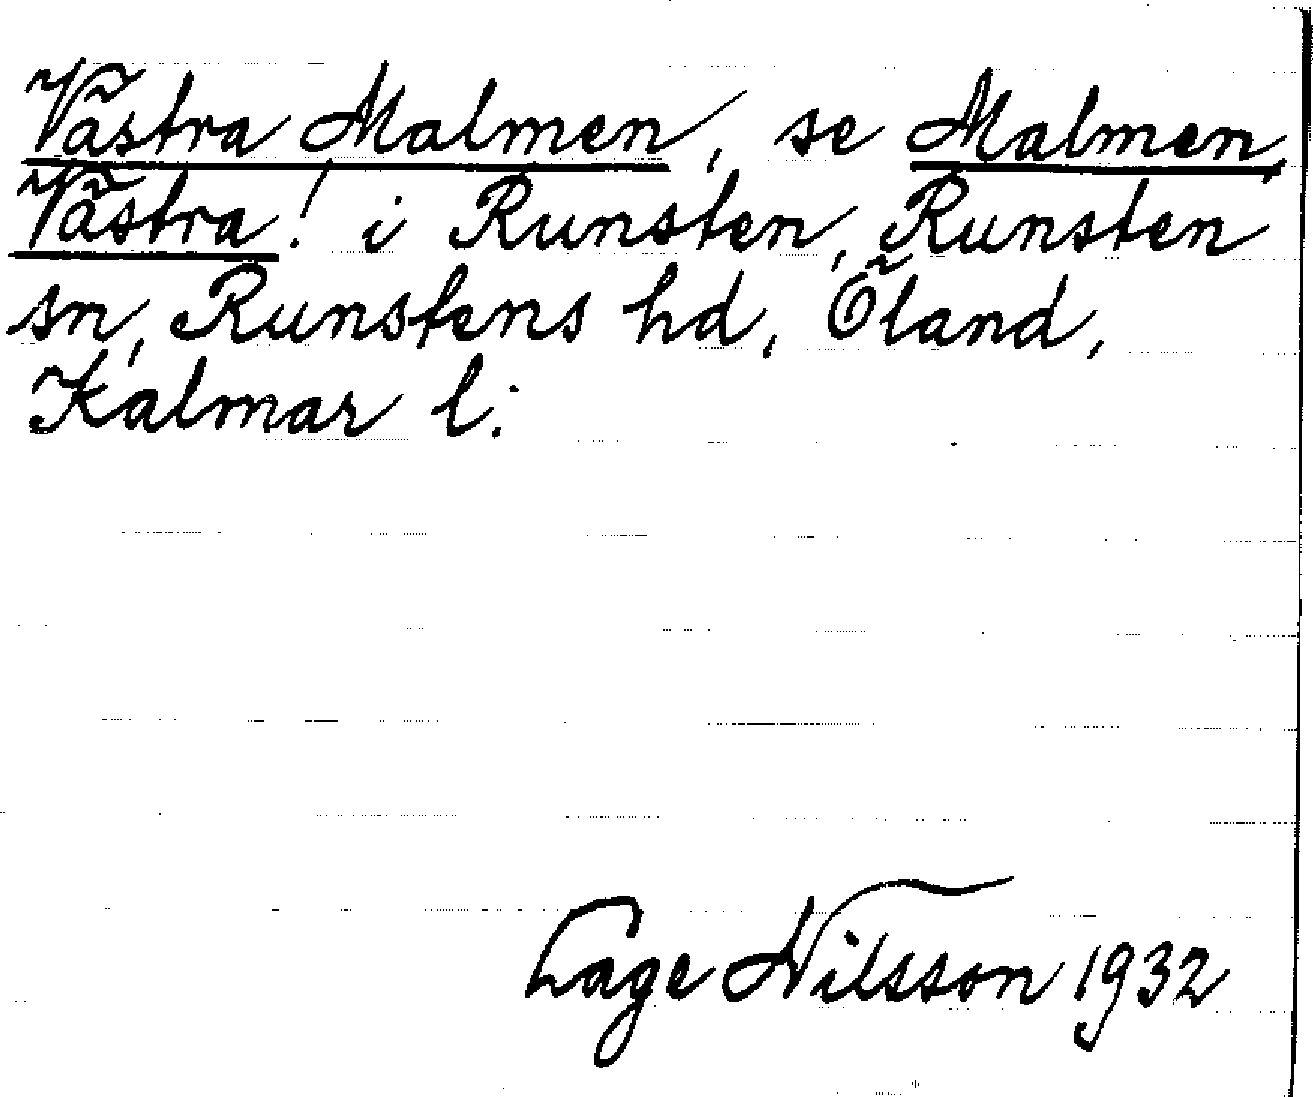 Västra Malmen, se Malmen,
Västra! i Runsten, Runsten
sn, Runstens hd, Öland,
Kalmar l:
Lage Nilsson 1932